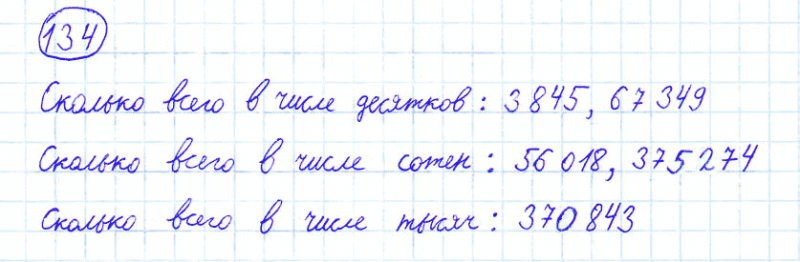 134
Сколько всего в числе десятков: 3845, 67 349
Сколько всего в числе сотен: 56 018, 375 274
Сколько всего в числе тысяч: 370 843